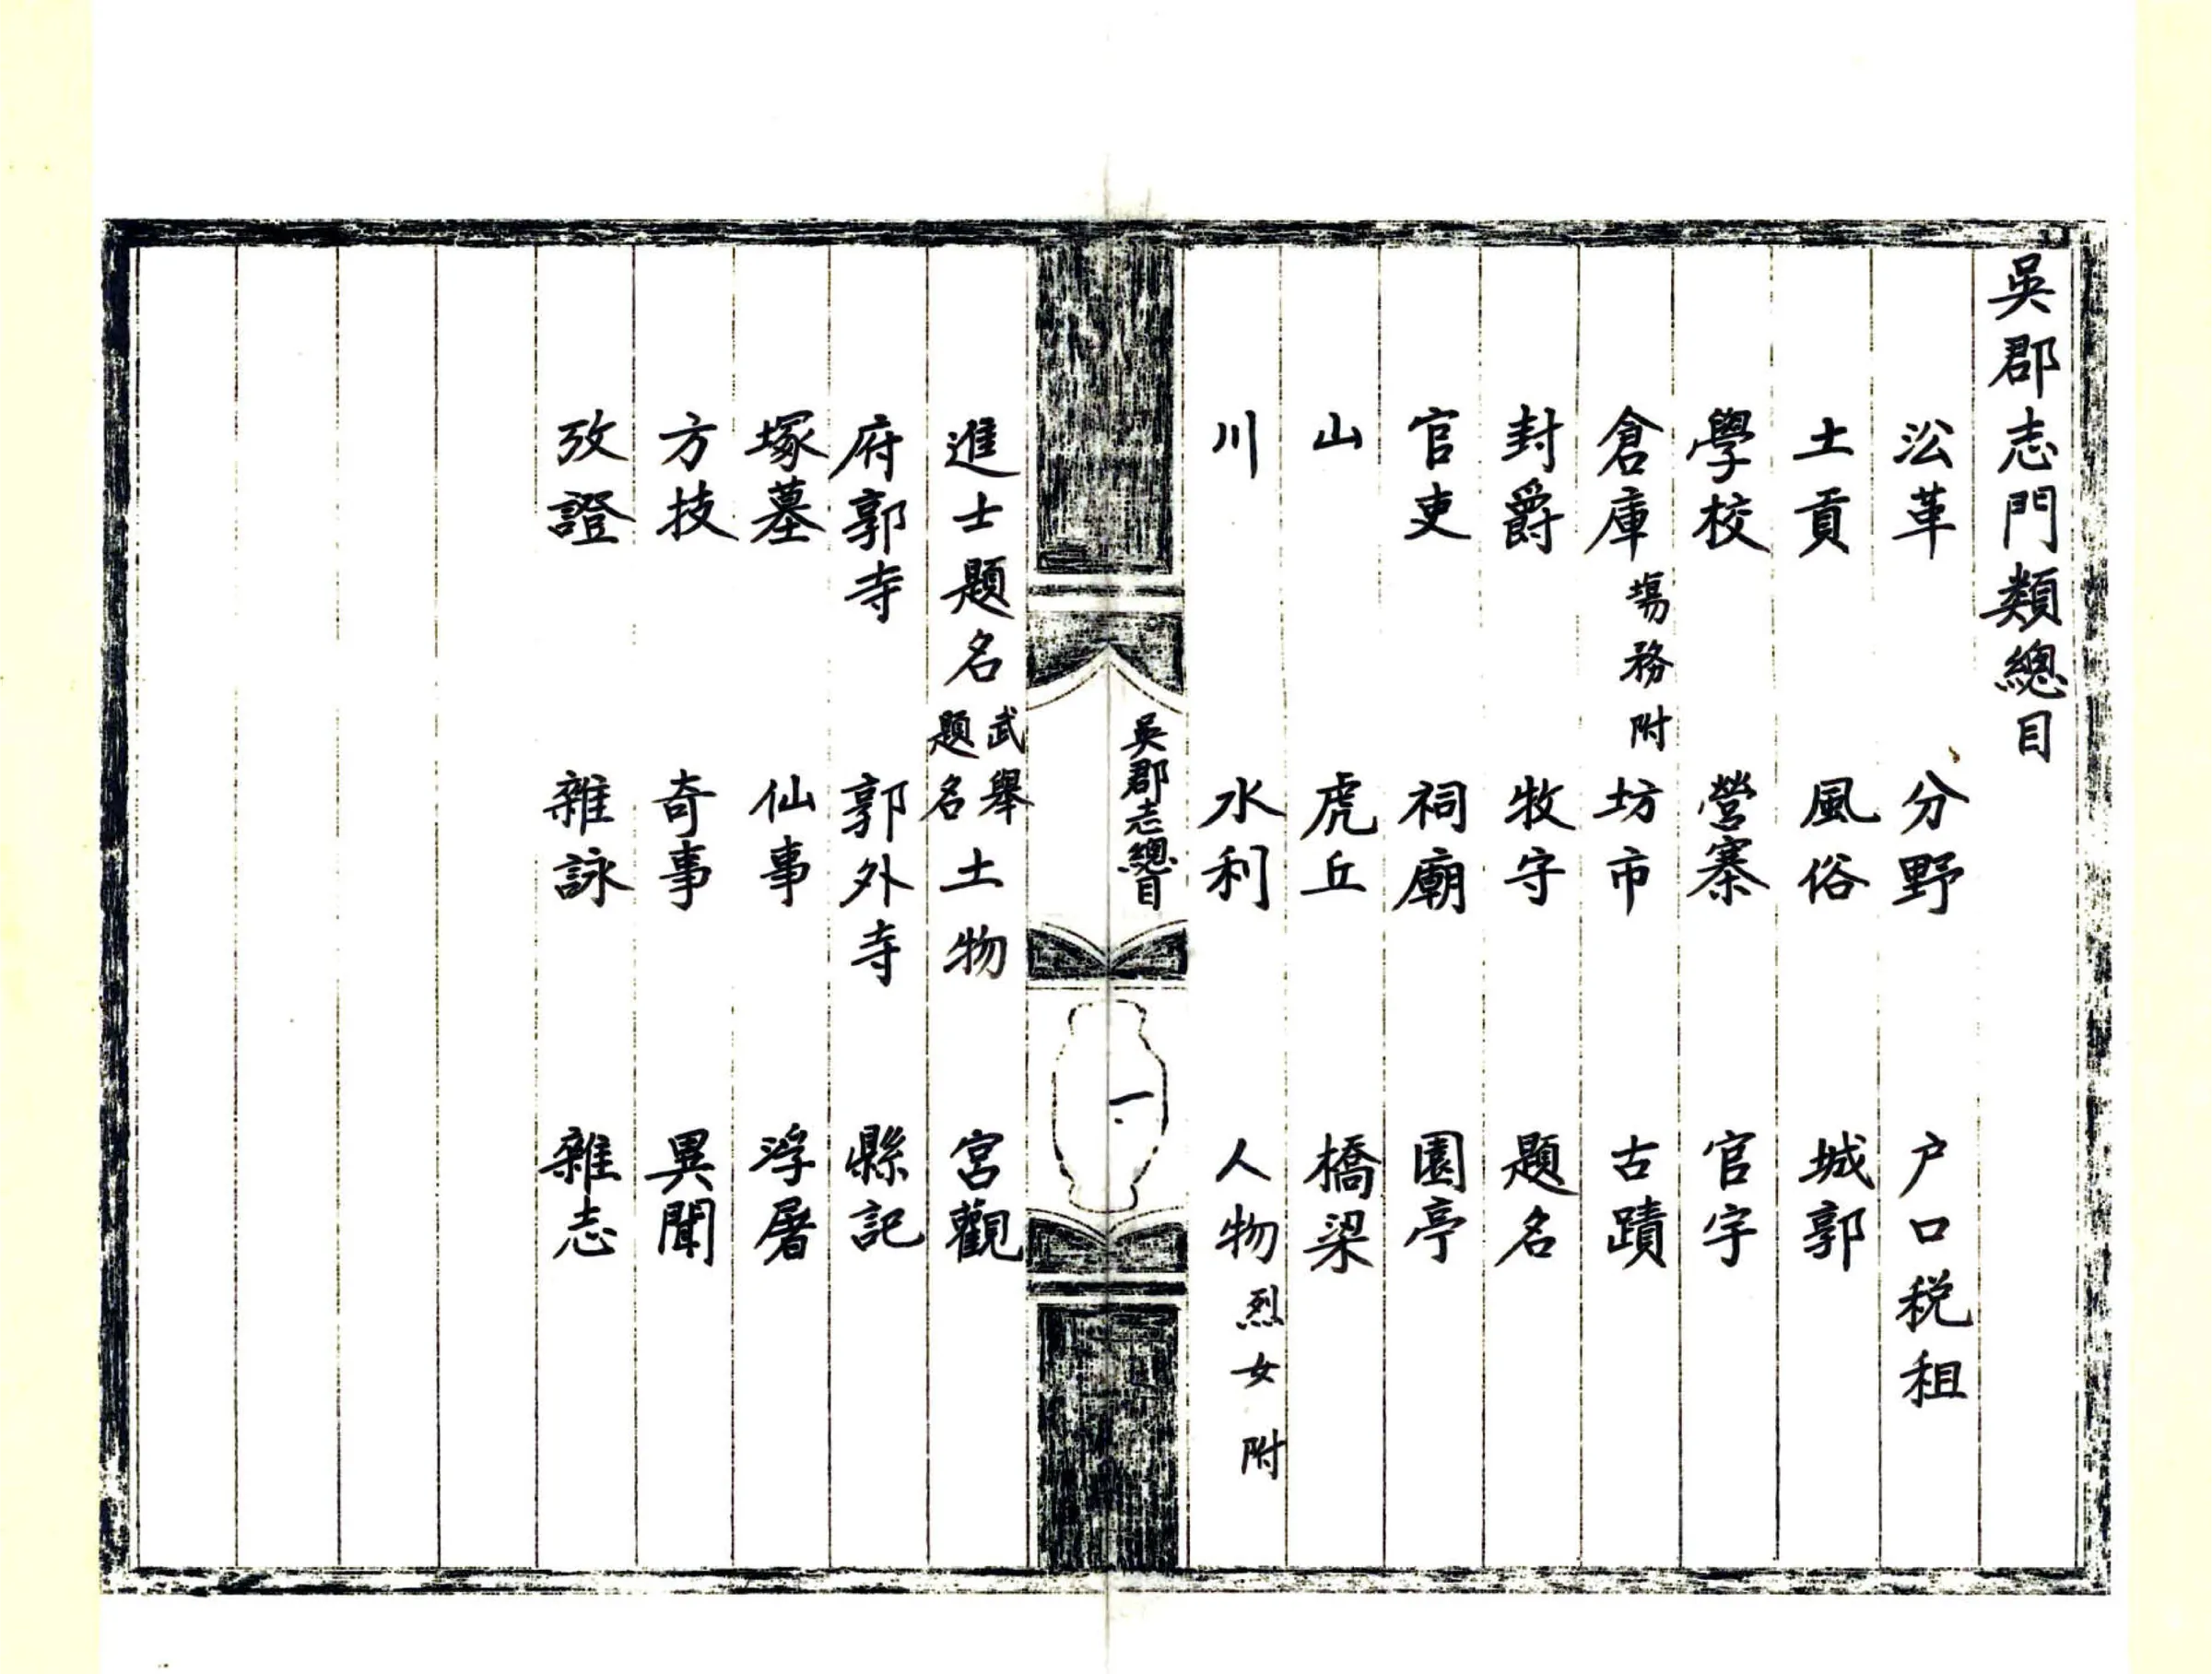 吳郡志門類總目
㳂革 分野 户口税租
土貢 風俗 城郭
學校 營寨 官宇
倉庫塲務附 坊市 古蹟
封爵 牧守 題名
官吏 祠廟 園亭
山 虎丘 橋梁
川 水利 人物烈女附
吳郡志總目
一
進士題名武舉題名 土物 宮觀
府郭寺 郭外寺 縣記
塚墓 仙事 浮屠
方技 奇事 異聞
攷證 雜詠 雜志